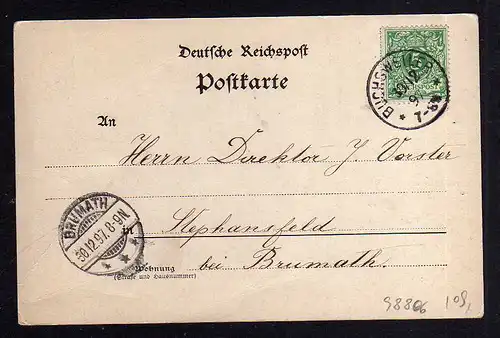 Deutsche Reichspost
Postkarte
BUCHSWEILER
30/12
97
* 7-8N *
An
Herrn Direktor J. Vorster
BRUMATH
30.12.97. 8-9N
* * *
in Stephansfeld
Wohnung
(Straße und Hausnummer)
bei Brumath.
98806